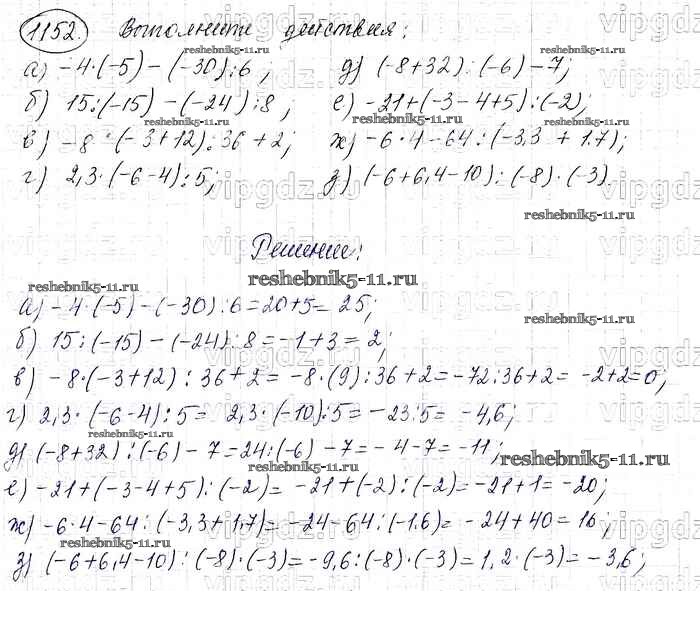 1152. Выполнить действия:
а) -4·(-5)-(-30):6; д) (-8+32):(-6)-7;
б) 15:(-15)-(-24):8; е) -21+(-3-4+5):(-2);
в) -8·(-3+12):36+2; ж) -6·4-64:(-3,3+1.7);
г) 2,3·(-6-4):5; з) (-6+6,4-10):(-8)·(-3).
Решение:
а) -4·(-5)-(-30):6=20+5=25;
б) 15:(-15)-(-24):8=-1+3=2;
в) -8·(-3+12):36+2=-8·(9):36+2=-72:36+2=-2+2=0;
г) 2,3·(-6-4):5=2,3·(-10):5=-23:5=-4,6;
д) (-8+32):(-6)-7=24:(-6)-7=-4-7=-11;
е) -21+(-3-4+5):(-2)=-21+(-2):(-2)=-21+1=-20;
ж) -6·4-64:(-3,3+1,7)=-24-64:(-1,6)=-24+40=16;
з) (-6+6,4-10):(-8)·(-3)=-9,6:(-8)·(-3)=1,2·(-3)=-3,6;
reshebnik5-11.ru
vipgdz.ru